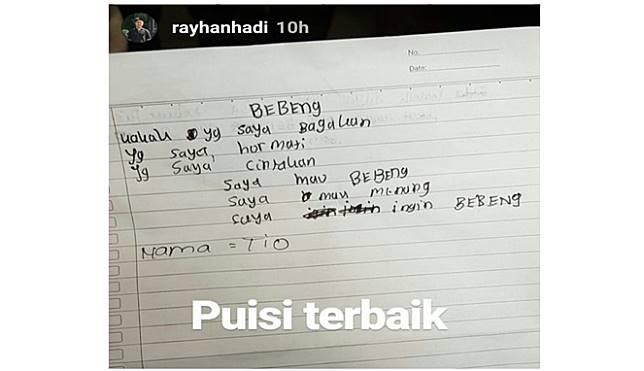 rayhanhadi 10h
No.
Date:
BEBENg
kakak yg saya Bagakan
Yg saya, hormati
Yg saya cintakan
saya mau BEBENg
saya mau menung
saya ingin BEBENG
Nama = TIO
Puisi terbaik